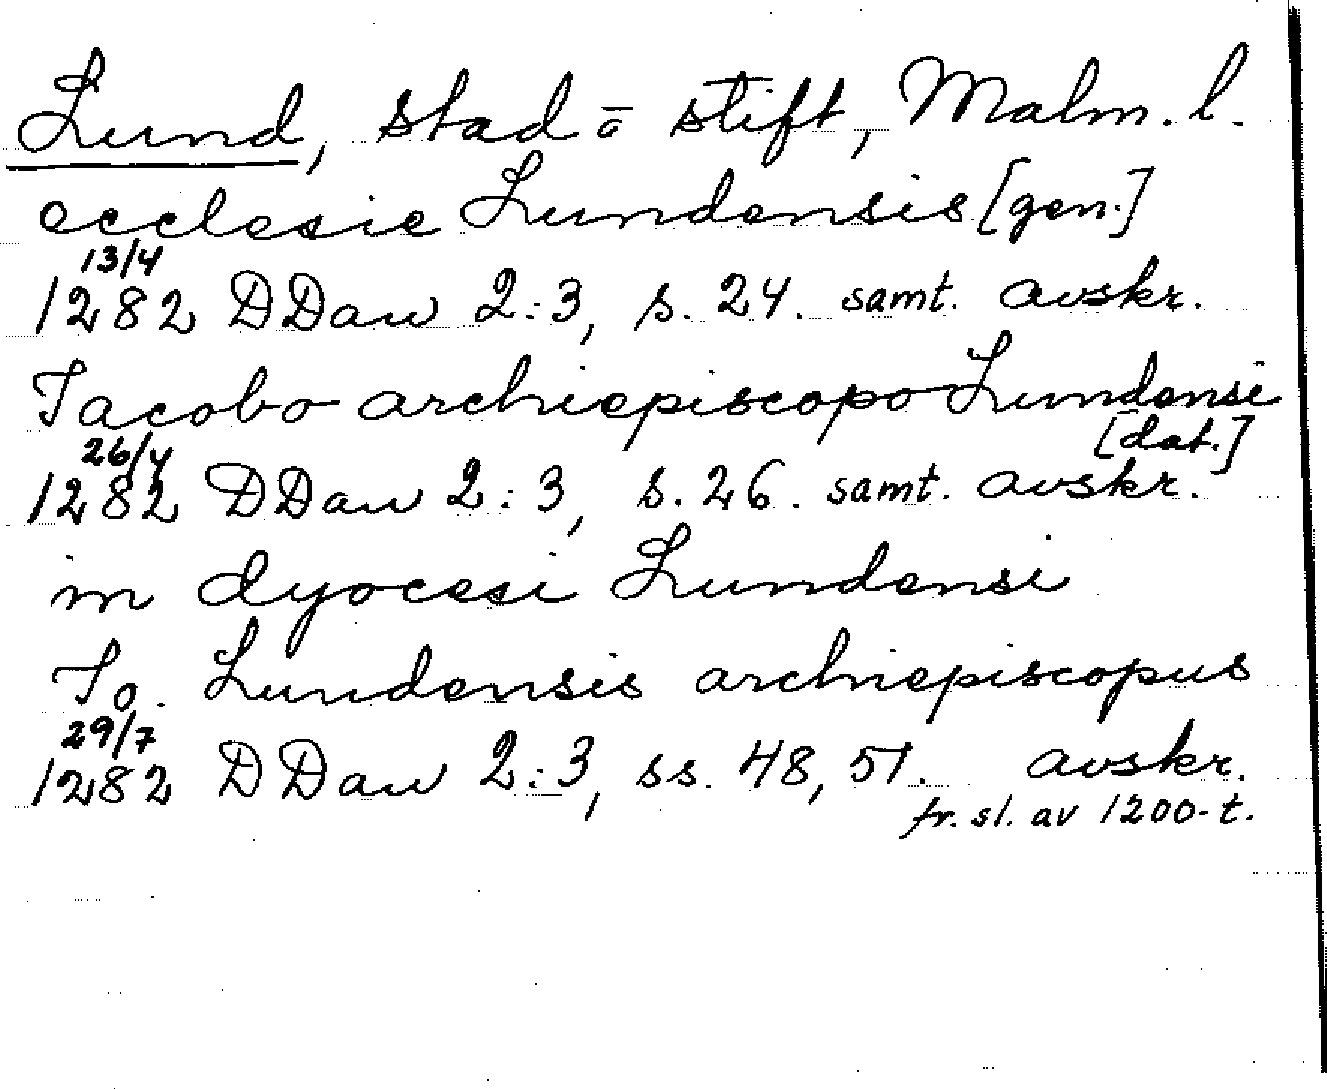 Lund, stad o stift, Malm. l.
ecclesie Lundensis [gen.]
13/4
1282 DDan 2:3, s. 24. samt. avskr.
Iacobo archiepiscopo Lundensi
[dat.]
26/4
1282 DDan 2:3, s. 26. samt. avskr.
in dyocesi Lundensi
Io. Lundensis archiepiscopus
29/7
1282 DDan 2:3, ss. 48, 51. avskr.
fr. sl. av 1200-t.